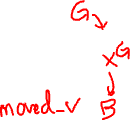 G
x G
moved_v B